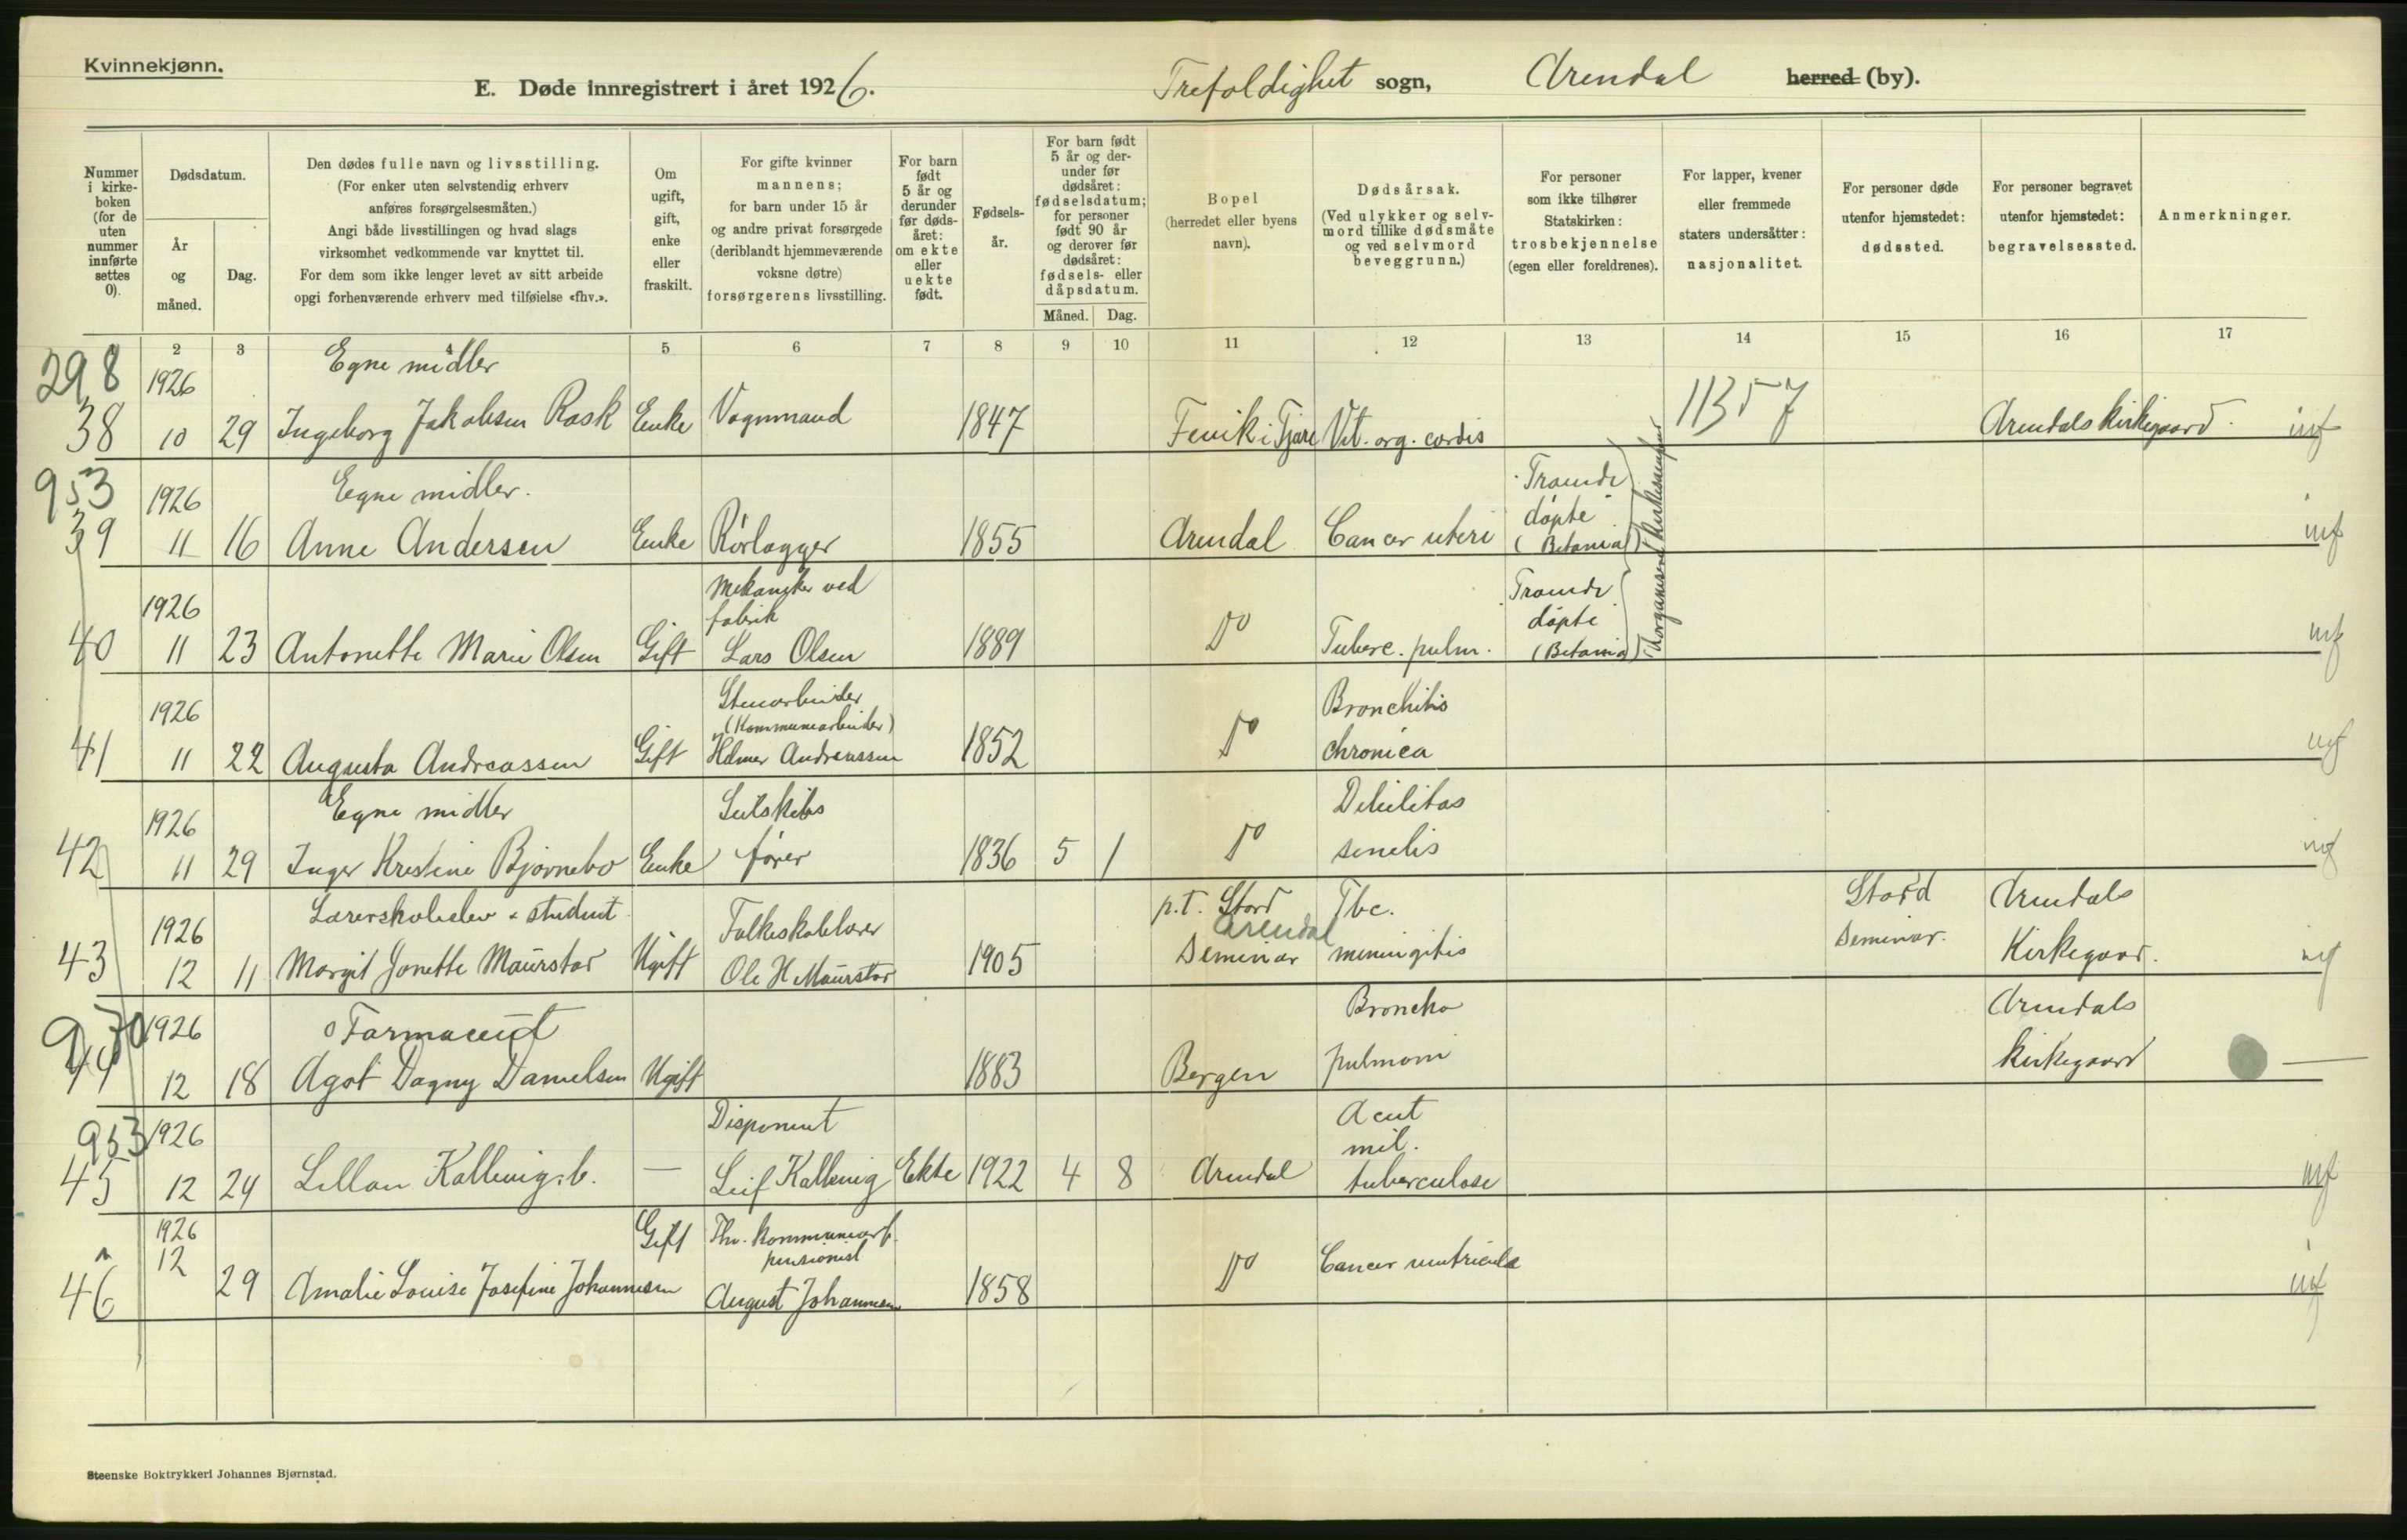 Kvinnekjønn.
E. Døde innregistrert i året 1926. Trefoldighet sogn, Arendal herred (by).
Nummer i kirkeboken (for de uten nummer innførte settes 0).
Dødsdatum.
År og måned.
Dag.
Den dødes fulle navn og livsstilling.
(For enker uten selvstendig erhverv
anføres forsørgelsesmåten.)
Angi både livsstillingen og hvad slags
virksomhet vedkommende var knyttet til.
For dem som ikke lenger levet av sitt arbeide
opgi forhenværende erhverv med tilføielse «fhv.».
Om ugift, gift, enke eller fraskilt.
For gifte kvinner
mannens;
for barn under 15 år
og andre privat forsørgede
(deriblandt hjemmeværende
voksne døtre)
forsørgerens livsstilling.
For barn født 5 år og derunder før dødsåret: om ekte eller uekte født.
Fødselsår.
For barn født 5 år og derunder før dødsåret: fødselsdatum; for personer født 90 år og derover før dødsåret: fødsels- eller dåpsdatum.
Måned. Dag.
Bopel
(herredet eller byens
navn).
Dødsårsak.
(Ved ulykker og selvmord tillike dødsmåte og ved selvmord beveggrunn.)
For personer
som ikke tilhører
Statskirken:
trosbekjennelse
(egen eller foreldrenes).
For lapper, kvener
eller fremmede
staters undersåtter:
nasjonalitet.
For personer døde
utenfor hjemstedet:
dødssted.
For personer begravet
utenfor hjemstedet:
begravelsessted.
Anmerkninger.
2 3 4 5 6 7 8 9 10 11 12 13 14 15 16 17
298 1926 Egne midler 11357
38 10 29 Ingeborg Jakobsen Rask Enke Vognmand 1847 Fevik i Fjære Vit. org. cordis Arendals kirkegaard.
953 1926 Egne midler.
39 11 16 Anne Andersen Enke Rörlægger 1855 Arendal Cancer uteri døpte (Betania)
1926 Mekaniker ved fabrik
40 11 23 Antonette Marie Olsen Gift Lars Olsen 1889 Do Tuberc. pulm. døpte (Betania)
1926 Stenarbeider (Kommunearbeider) Bronchitis
41 11 22 Augusta Andreassen Gift Andreassen 1852 Do chronica
1926 Egne midler Seilskibs Debilitas
42 11 29 Inger Kristine Bjørnebo Enke fører 1836 5 1 Do senilis
1926 Lærerskoleelev & student Folkeskolelærer p.t. Stord Arendal Tbc. Stord Arendals
43 12 11 Margit Jonette Maurstad Ugift Ole H Maurstad 1905 Seminar meningitis Seminar. Kirkegaard.
930 1926 Farmaceut Broncho Arendals
44 12 18 Agot Dagny Danielsen Ugift 1883 Bergen pulmoni kirkegaard —
953 1926 Disponent Acut mil.
45 12 24 Lillan Kallevig — Leif Kallevig Ekte 1922 4 8 Arendal tuberculose
1926 Gift Fhv. kommunearb. pensionist
46 12 29 Amalie Louise Josefine Johannesen August Johannesen 1858 Do Cancer ventricula
Steenske Boktrykkeri Johannes Bjørnstad.